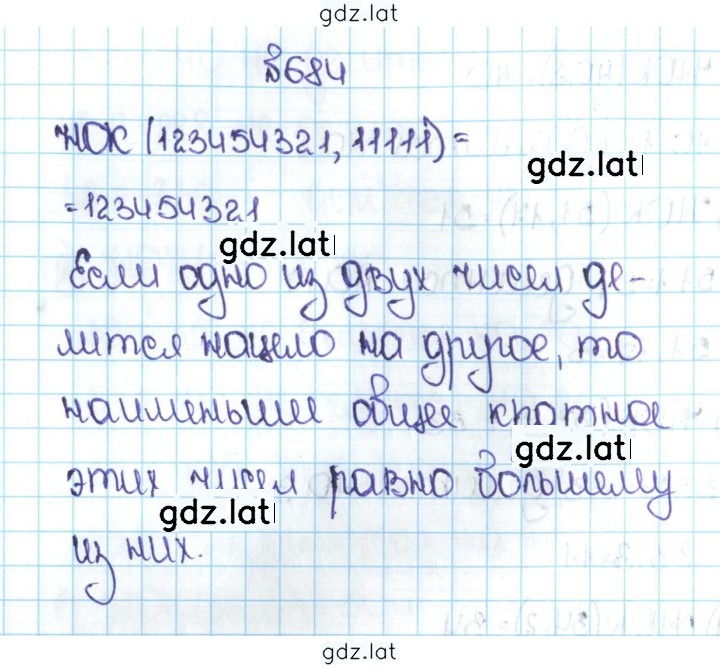 gdz.lat
№684
НОК (123454321, 11111) =
gdz.lat
= 123454321
gdz.lat
Если одно из двух чисел де-
лится нацело на другое, то
наименьшее общее кратное
gdz.lat
этих чисел равно большему
gdz.lat
из них.
gdz.lat